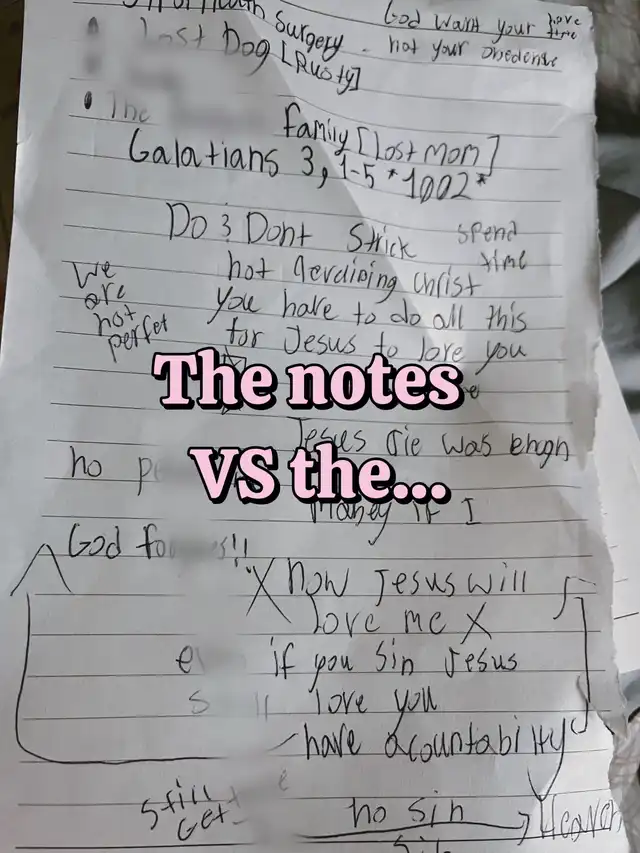 Surgery
God want your love
time
not your obedense
Lost Dog [Rusty]
The
family [lost mom]
Galatians 3, 1-5 *1002*
Do & Dont Strick
spend
time
We
are
not
perfet
not Christ
you have to do all this
for Jesus to love you
The notes
VS the...
Jesus die was enogh
no
Money if I
God !!
X now Jesus will
love me X
if you sin Jesus
love you
have acountability
Still
Get
no sin
Heaven